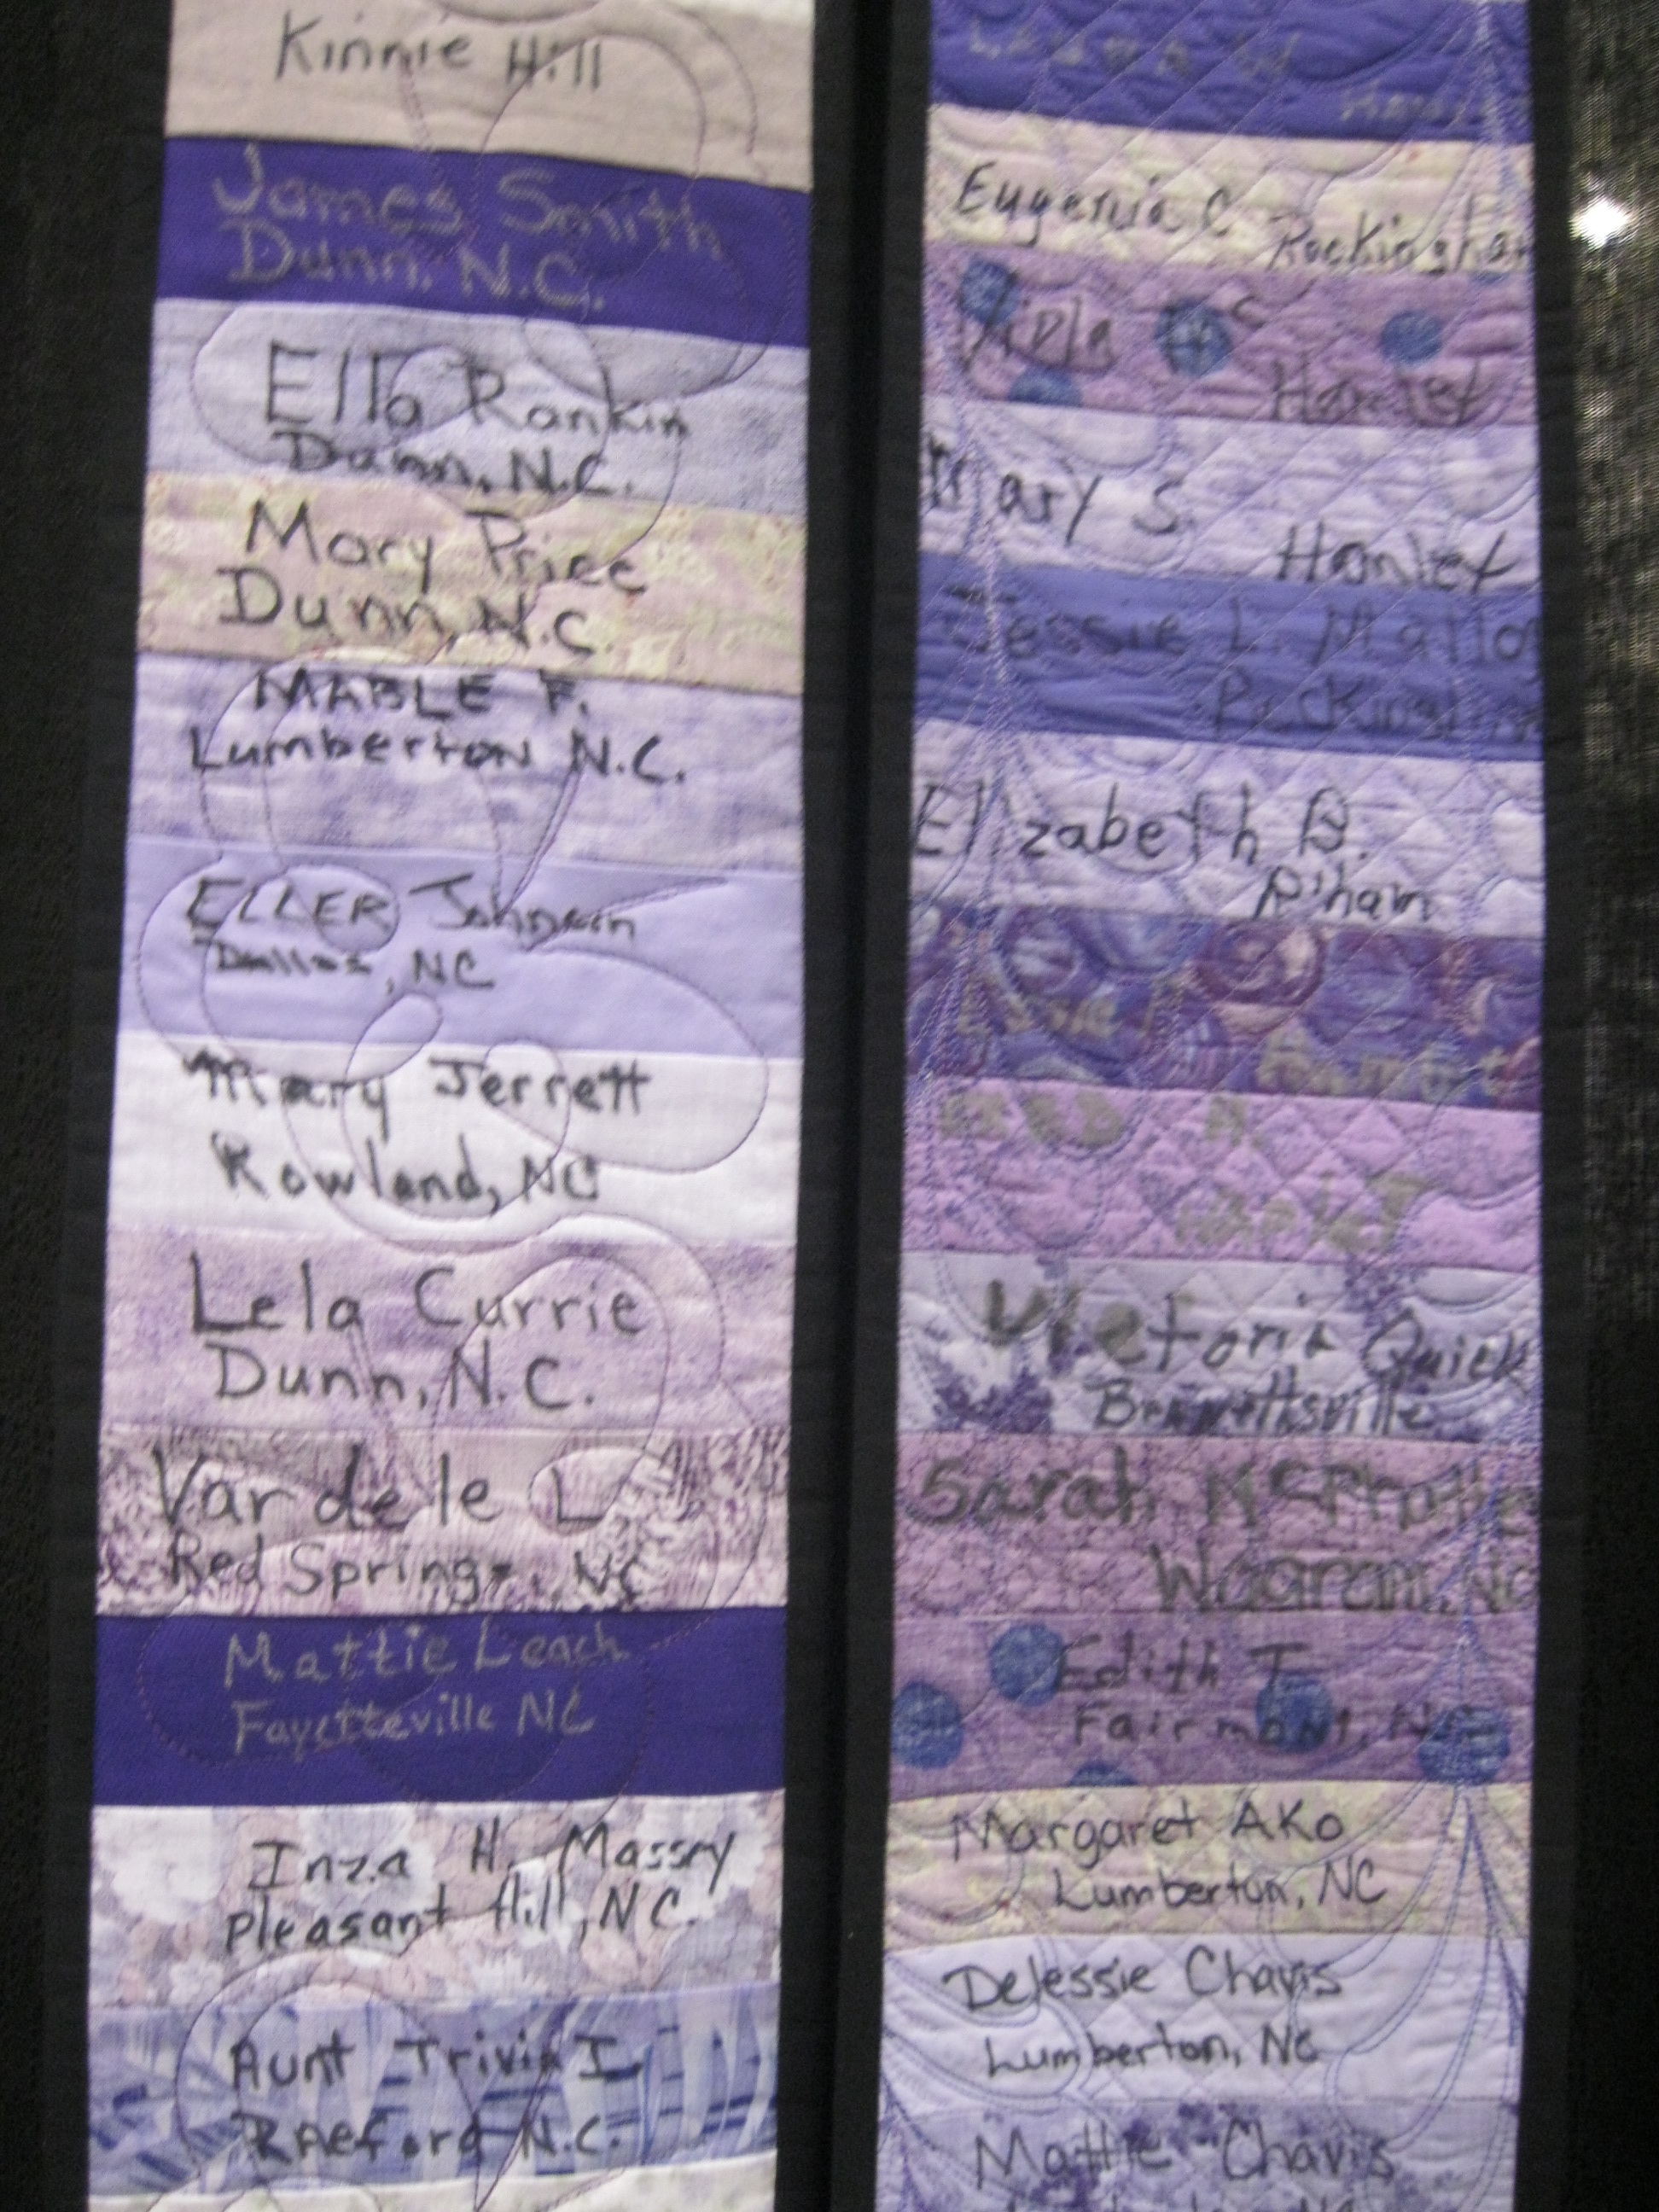 Kinnie Hill
James Smith
Dunn, N.C.
Ella Rankin
Dunn, N.C.
Mary Price
Dunn, N.C.
MABLE F.
Lumberton N.C.
ELLER Johnson
Dallas, NC
Mary Jerrett
Rowland, NC
Lela Currie
Dunn, N.C.
Vardele L.
Red Springs, NC
Mattie Leach
Fayetteville NC
Inza H. Massey
Pleasant Hill, NC.
Aunt Trivia I.
Raeford N.C.
Laura W
Eugenia C
Rockingham
Mc
Hamlet
Mary S.
Hamlet
Jessie L.
Elizabeth B.
R'ham
Hamlet
Victoria Quick
Bennettsville
Sarah
Wagram, NC
Edith T
Fairmont, NC
Margaret AKo
Lumberton, NC
DeJessie Chavis
Lumberton, NC
Mattie Chavis